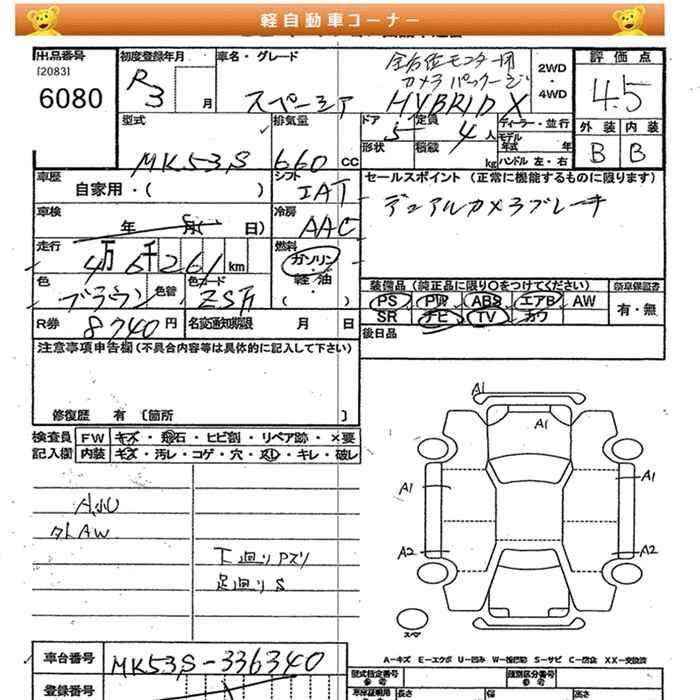 軽自動車コーナー
出品番号
[2083]
6080
初度登録年月
R3
月
車名・グレード
スペーシア
全方位モニター用
カメラパッケージ
HYBRID X
2WD
・
4WD
評価点
4.5
外装 内装
B B
型式
MK53S
排気量
660 cc
ドア
5
定員
4 人
ディーラー・並行
モデル
年式 年
形状
積載
kg
ハンドル 左・右
車歴
自家用・( )
シフト
IAT
セールスポイント (正常に機能するものに限ります)
デュアルカメラブレーキ
車検
年 月( 日)
冷房
AAC
走行
4万6千261 km
燃料
ガソリン
・
軽油
・
( )
色
ブラウン
色替
色カード
ZSA
装備品 (純正品に限り○をつけてください)
PS PW ABS エアB AW
SR ナビ TV カワ
新車保証書
有・無
R券
8740 円
名変通知期限 月 日
後日品
注意事項申告欄(不具合内容等は具体的に記入して下さい)
修復歴 有 〔箇所 〕
検査員
記入欄
FW キズ・飛石・ヒビ割・リペア跡・×要
内装 キズ・汚レ・コゲ・穴・スレ・キレ・破レ
A小U
外LAW
下廻りPズリ
足廻りS
A1
A1
A1
A1
A2
A2
スペア
A-キズ E-エクボ U-凹み W-補修跡 S-サビ C-腐食 XX-交換済
車台番号
MK53S-336340
登録番号
型式指定番号
参考
類別区分番号
参考
長さ
幅
高さ